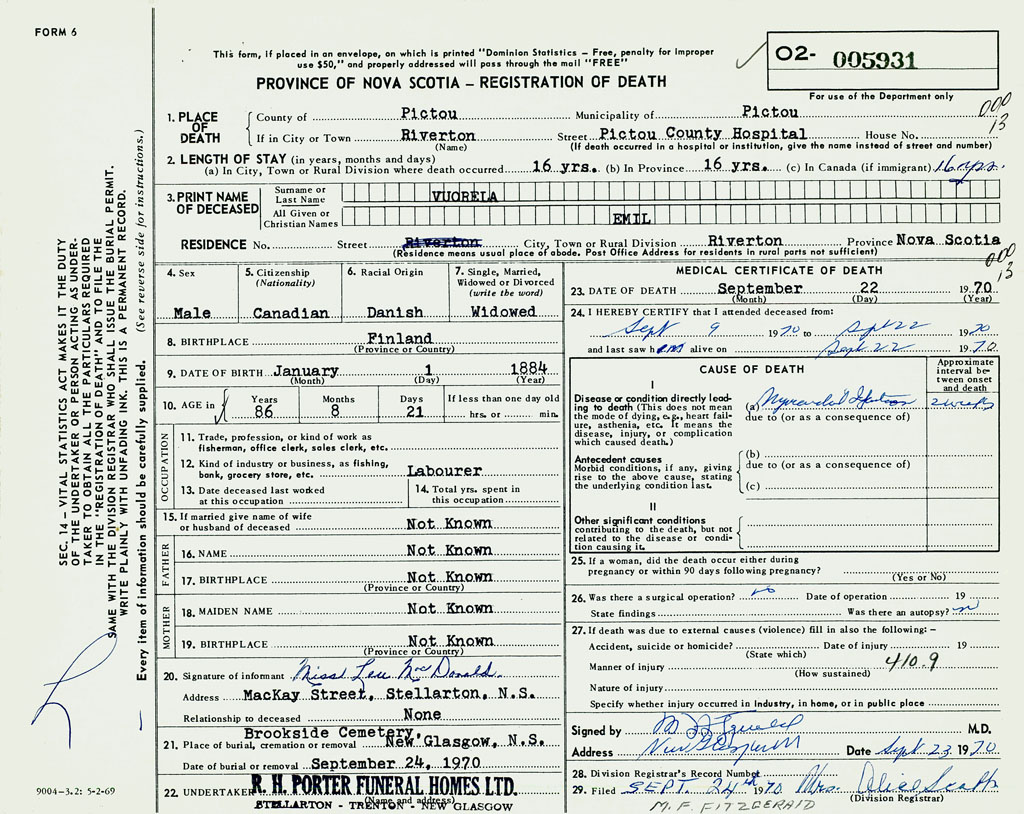 FORM 6
This form, if placed in an envelope, on which is printed "Dominion Statistics – Free, penalty for improper
use $50," and properly addressed will pass through the mail "FREE"
PROVINCE OF NOVA SCOTIA – REGISTRATION OF DEATH
02- 005931
For use of the Department only
000
13
1. PLACE OF DEATH
County of Pictou Municipality of Pictou
If in City or Town Riverton Street Pictou County Hospital House No.
(Name) (If death occurred in a hospital or institution, give the name instead of street and number)
2. LENGTH OF STAY (in years, months and days)
(a) In City, Town or Rural Division where death occurred 16 yrs. (b) In Province 16 yrs. (c) In Canada (if immigrant) 16 yrs.
3. PRINT NAME OF DECEASED
Surname or Last Name VUORELA
All Given or Christian Names EMIL
RESIDENCE No. Street Riverton City, Town or Rural Division Riverton Province Nova Scotia
(Residence means usual place of abode. Post Office Address for residents in rural parts not sufficient)
000
13
4. Sex
Male
5. Citizenship
(Nationality)
Canadian
6. Racial Origin
Danish
7. Single, Married,
Widowed or Divorced
(write the word)
Widowed
8. BIRTHPLACE Finland
(Province or Country)
9. DATE OF BIRTH January 1 1884
(Month) (Day) (Year)
10. AGE in
Years Months Days If less than one day old
86 8 21 hrs. or min.
OCCUPATION
11. Trade, profession, or kind of work as
fisherman, office clerk, sales clerk, etc.
12. Kind of industry or business, as fishing,
bank, grocery store, etc. Labourer
13. Date deceased last worked
at this occupation
14. Total yrs. spent in
this occupation
15. If married give name of wife
or husband of deceased Not Known
FATHER
16. NAME Not Known
17. BIRTHPLACE Not Known
(Province or Country)
MOTHER
18. MAIDEN NAME Not Known
19. BIRTHPLACE Not Known
(Province or Country)
20. Signature of informant Miss Lew MacDonald
Address MacKay Street, Stellarton, N.S.
Relationship to deceased None
Brookside Cemetery,
21. Place of burial, cremation or removal New Glasgow, N.S.
Date of burial or removal September 24, 1970
22. UNDERTAKER R. H. PORTER FUNERAL HOMES LTD.
(Name and address)
STELLARTON - TRENTON - NEW GLASGOW
MEDICAL CERTIFICATE OF DEATH
23. DATE OF DEATH September 22 1970
(Month) (Day) (Year)
24. I HEREBY CERTIFY that I attended deceased from:
Sept 9 1970 to Sept 22 1970
and last saw him alive on Sept 22 1970
CAUSE OF DEATH
Approximate
interval be-
tween onset
and death
I
Disease or condition directly lead-
ing to death (This does not mean
the mode of dying, e.g., heart fail-
ure, asthenia, etc. It means the
disease, injury, or complication
which caused death.)
(a) Myocardial Infarction 2 weeks
due to (or as a consequence of)
Antecedent causes
Morbid conditions, if any, giving
rise to the above cause, stating
the underlying condition last.
(b)
due to (or as a consequence of)
(c)
II
Other significant conditions
contributing to the death, but not
related to the disease or condi-
tion causing it.
25. If a woman, did the death occur either during
pregnancy or within 90 days following pregnancy?
(Yes or No)
26. Was there a surgical operation? no Date of operation 19
State findings Was there an autopsy? no
27. If death was due to external causes (violence) fill in also the following: –
Accident, suicide or homicide? Date of injury 19
(State which)
410.9
Manner of injury
(How sustained)
Nature of injury
Specify whether injury occurred in industry, in home, or in public place
Signed by M.D.
Address New Glasgow Date Sept 23 1970
28. Division Registrar's Record Number
29. Filed SEPT. 24th 1970 Mrs. Alice
(Division Registrar)
M. F. FITZGERALD
SEC. 14 – VITAL STATISTICS ACT MAKES IT THE DUTY
OF THE UNDERTAKER OR PERSON ACTING AS UNDER-
TAKER TO OBTAIN ALL THE PARTICULARS REQUIRED
IN THE "REGISTRATION OF DEATH" AND TO FILE THE
SAME WITH THE DIVISION REGISTRAR WHO SHALL ISSUE THE BURIAL PERMIT.
WRITE PLAINLY WITH UNFADING INK. THIS IS A PERMANENT RECORD.
Every item of information should be carefully supplied. (See reverse side for instructions.)
9004-3.2: 5-2-69